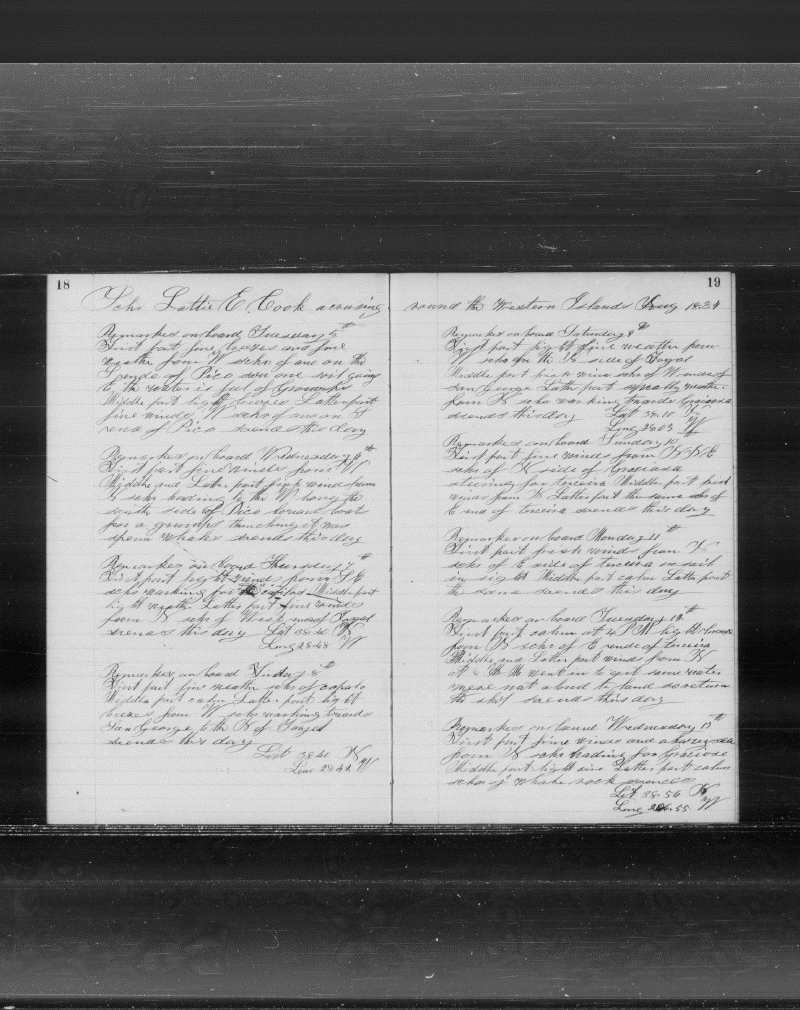 18
Schr Lottie E. Cook a crusing
Remarkes on board Tuesday 5th
First part fine breezes and fine
weathe from W schr of and on the
E ende of Pico saw one
E the water is ful of Gromps
Middle part light breezes Latter part
fine winds W schr of an on E
end of Pico soends this day
Remarkes on board Wednesday 6th
First part fine winds from W
Middle and Latter part fresh winds from
schr heading to the W long the
south side of Pico boats
for a grumps thincking it was
sperm whales soends this day
Remarkes on board Thursday 7th
First part light winds from SE
schr working for Middle part
light weathe Latter part fine winds
from N schr of West ende of Fayal
soends this day Lat 38.40 N
Long 28.48 W
Remarkes on board Friday 8th
First part fine weathe schr of
Middle part calm Latter part light
breezes from W schr working towards
San George to the N of Fayal
soends this day
Lat 38.40 N
Long 28.42 W
19
round the Western Islands Aug 1884
Remarkes on board Saturday 9th
First part light fine weathe from
W schr on the side of Fayal
Middle part fresh wins schr of W ende of
San George Latter part squally weather
from N schr working towards Graciosa
soends this day Lat 39.10 N
Long 28.03 W
Remarkes on board Sunday 10th
First part fine winds from N N E
schr of N side of Graciosa
steering for terceira Middle part fresh
winds from N Latter part the same schr of
E end of terceira soends this day
Remarkes on board Monday 11th
First part fresh wind from N
schr of E side of terceira a sail
in sight Middle part calm Latter part
the same soends this day
Remarkes on board Tuesday 12th
First part calm at 4 PM light breeze
from N schr of E ende of terceira
Middle and Latter part winds from N
at 8 went in to get some water
were not alound to land so return
the ship soends this day
Remarkes on board Wednesday 13th
First part fine winds
from N schr heading for Graciose
Middle part light airs Latter part calm
schr of whale rock soends
Lat 38.56 N
Long W